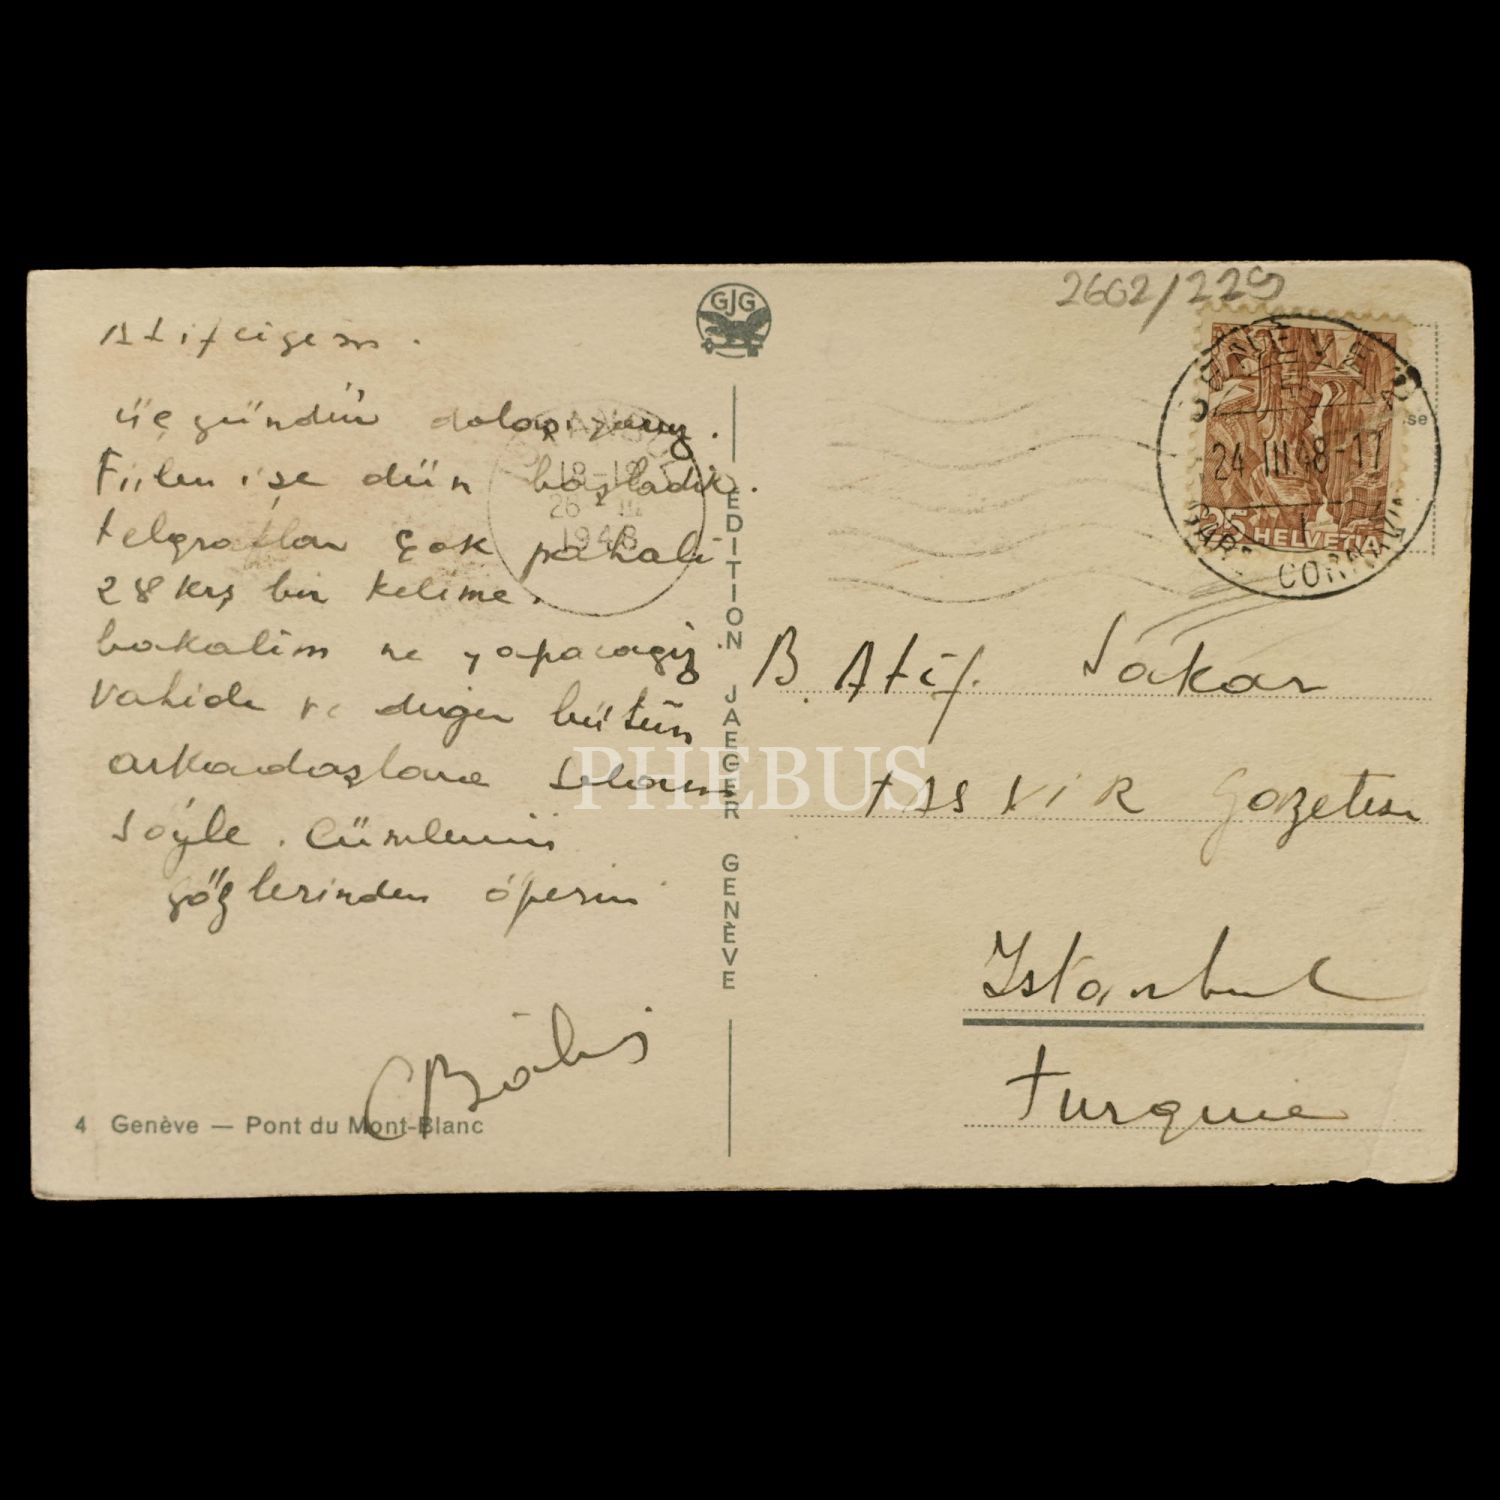 2602/229
GJG
Atifciğim.
üç gündür dolaşıyoruz.
Fiilen ise dün başladık.
Telgraflar çok pahalı
28 krş bir kelime.
bakalım ne yapacağız.
Vahide ve diğer bütün
arkadaşlara selam
söyle. Cümlenin
gözlerinden öperim
18-19
26 III
1948
EDITION JAEGER GENÈVE
4 Genève — Pont du Mont-Blanc
GENÈVE
24 III 48-17
CORNAVIN
25 HELVETIA
B. Atıf. Sakar
TASVİR Gazetesi
Istanbul
Turquie
PHEBUS